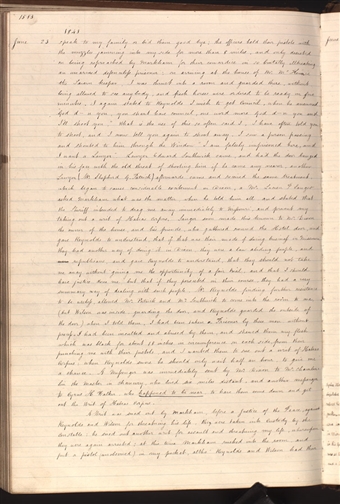 1841
June 24 speak to my family or but three yards trip, the officers held their pistols with
the muzzles pointing into my side for more than 8 miles, and only desisted
on being reproached by Markham for their cowardice in so brutally illtreating
an unarmed defenceless prisoner. on arriving at the house of Mr. 
the tavern keeper, I was thrust into a room and guarded there, without
being allowed to see anybody, and fresh horses were ordered to be ready in five
minutes. I again stated to Reynolds, I wish to get counsel, when he answered
God d—n you, you shan't have counsel, one word more, God d—n you, and
I'll shoot you. "What is the use of this so often said I, I have often told you
to shoot, and I now tell you again to shoot away." I saw a person passing
and shouted to him through the window. I am falsely imprisoned here, and
I want a lawyer. Lawyer Edward Southwick came, and had the door banged
in his face with the old threat of shooting him if he came any nearer, another
lawyer (Mr. Shepherd G. Patrick) afterwards came and received the same treatment,
which began to cause considerable excitement in Dixon. A Mr. Lucien P. Sanger
asked Markham what was the matter, when he told him all, and stated that
the Sheriff intended to drag me away immediately to Missouri, and prevent my
taking out a writ of Habeas corpus. Sanger soon made this known to Mr. Dixon
the owner of the house, and his friends, who gathered around the hotel door, and
gave Reynolds to understand, that if that was their mode of doing business in Missouri
they had another way of doing it in Dixon, they were a law abiding people and
republican, and gave Reynolds to understand that they should not take
me away without giving me the opportunity of a fair trial, and that I should
have justice done me, but that if they persisted in their course, they had a very
summary way of dealing with such people. Mr. Reynolds finding further resistance
to be useless allowed Mr. Patrick and Mr. Southwick to come into the room to me,
(but Wilson was inside, guarding the door, and Reynolds guarded the outside of
the door) when I told them, I had been taken a prisoner by these men without
process, I had been insulted and abused by them, and showed them my flesh
which was black for about 18 inches in circumference on each side, from their
punching me with their pistols, and I wanted them to sue out a writ of Habeas
corpus, when Reynolds swore he should only wait half an hour, to give me
a chance. A messenger was immediately sent by Mr. Dixon to Mr. Chamberlain
the Master in chancery, who lived six miles distant, and another messenger
to Cyrus H. Walker, who happened to be near, to have them come down and get
out the writ of Habeas corpus.
A writ was sued out by Markham, before a justice of the Peace, against
Reynolds and Wilson for threatening his life, they were taken into custody by the
constable, he sued out another writ for assault and threatening my life, whereupon
they were again arrested; at this time Markham rushed into the room and
put a pistol (unobserved) in my pocket, altho' Reynolds and Wilson had their